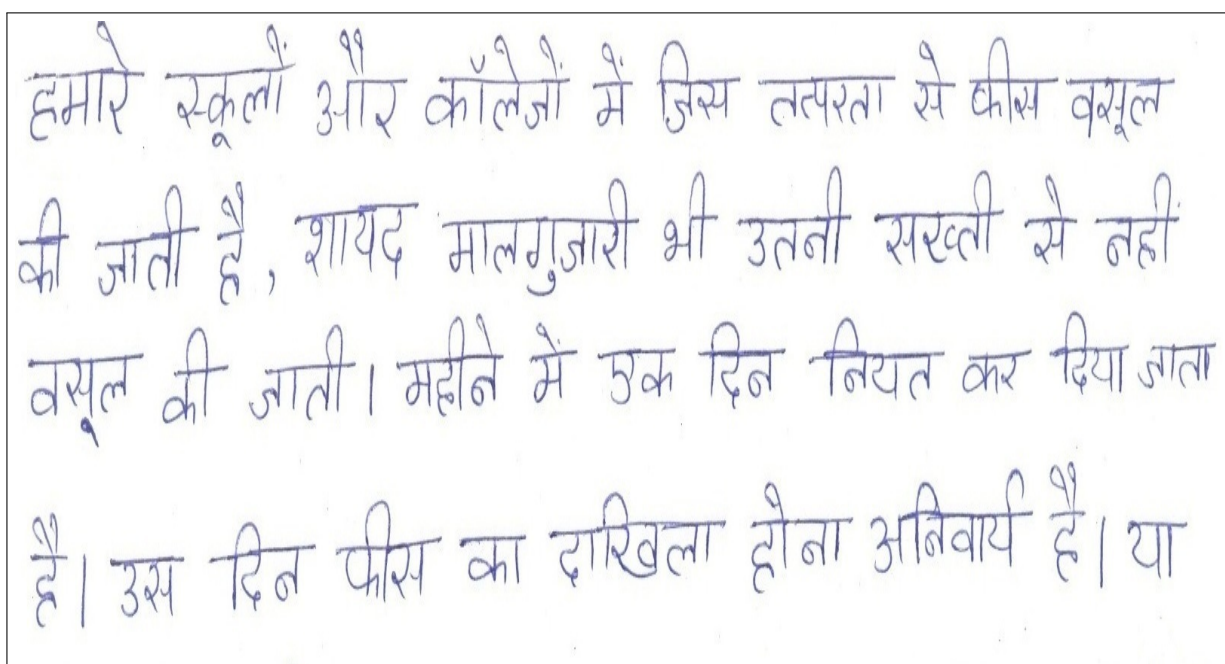 हमारे स्कूलों और कॉलेजों में जिस तत्परता से फीस वसूल
की जाती है, शायद मालगुजारी भी उतनी सख्ती से नहीं
वसूल की जाती। महीने में एक दिन नियत कर दिया जाता
है। उस दिन फीस का दाखिला होना अनिवार्य है। या